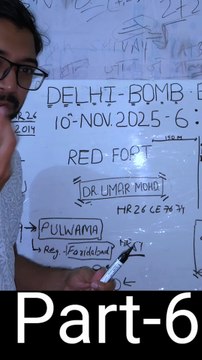 DELHI-BOMB-B
10-NOV.2025-6:
HR26
2014
150 M
RED FORT
DR UMAR MOHD.
HR 26 CE 7674
PULWAMA
Reg.-Faridabad
Part-6